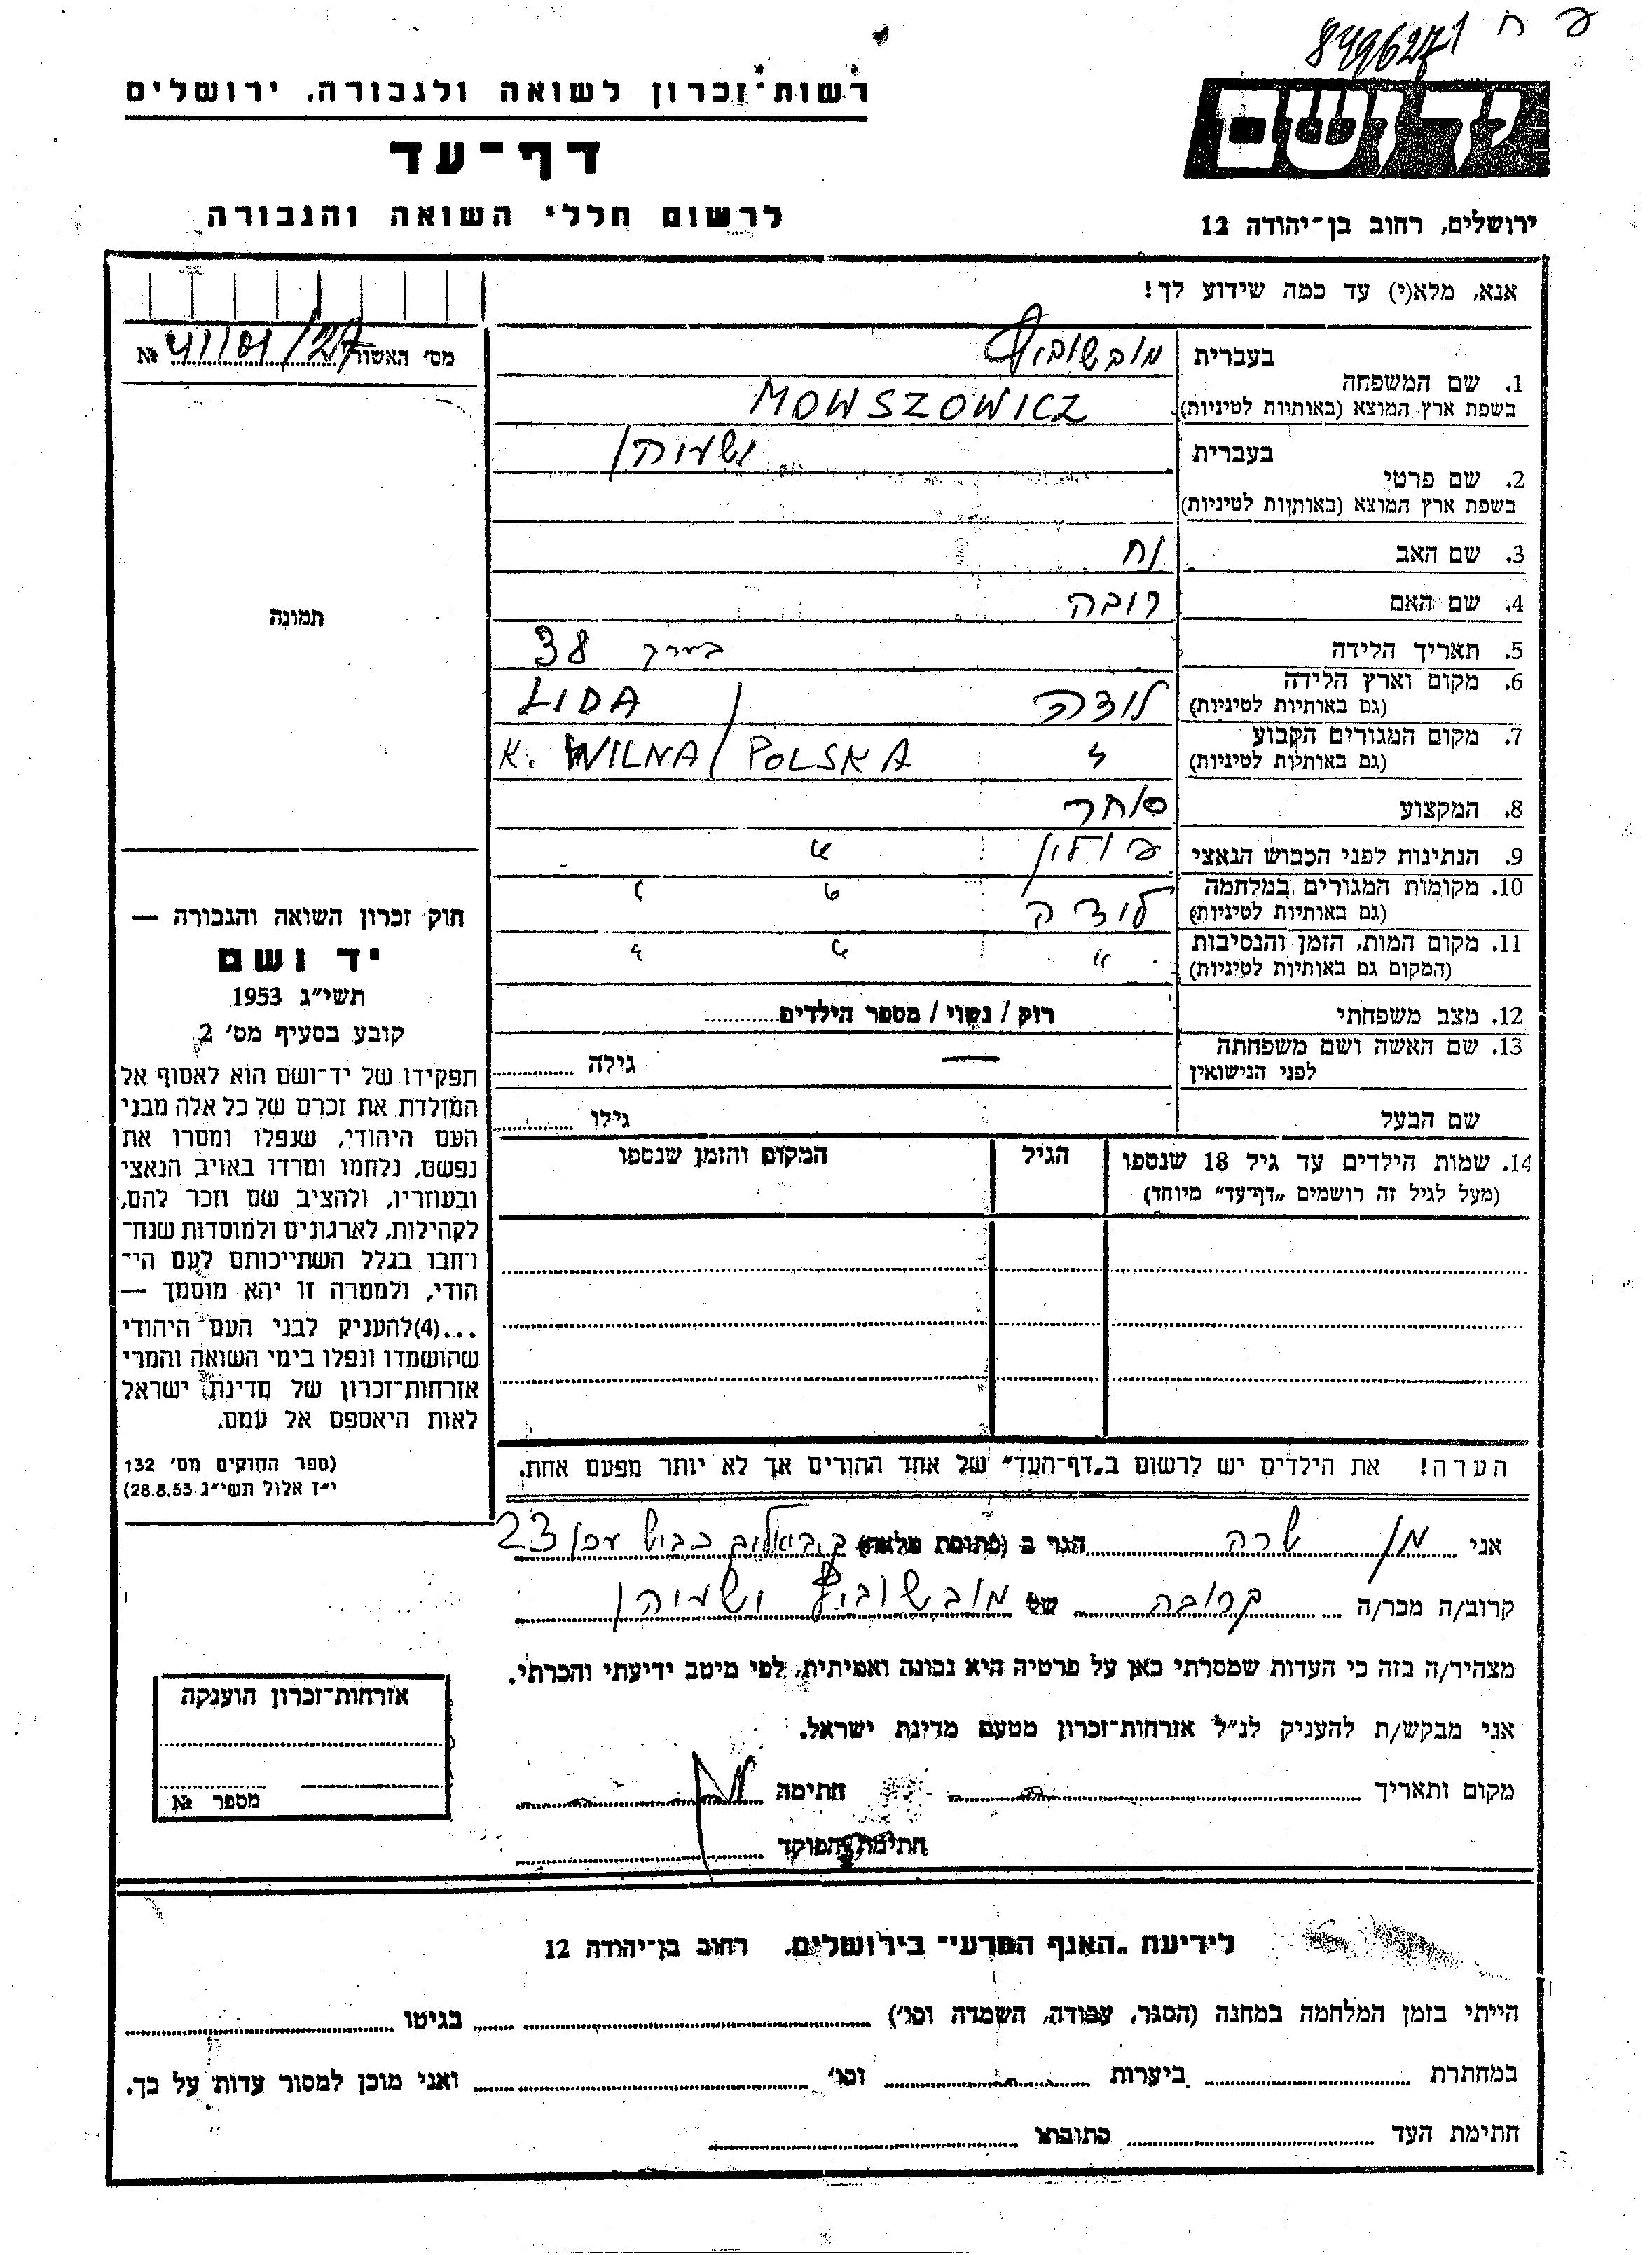 פ ח
8496271
רשות־זכרון לשואה ולגבורה, ירושלים
דף־עד
לרשום חללי השואה והגבורה
יד ושם
ירושלים, רחוב בן־יהודה 12
אנא, מלא(י) עד כמה שידוע לך!
מס׳ האשור № 41/01/27
1. שם המשפחה
בעברית מובשוביץ
בשפת ארץ המוצא (באותיות לטיניות) MOWSZOWICZ
2. שם פרטי
בעברית ושמיהו
בשפת ארץ המוצא (באותיות לטיניות)
3. שם האב נח
4. שם האם רובה
5. תאריך הלידה בערך 38
6. מקום וארץ הלידה לידה / LIDA
(גם באותיות לטיניות)
7. מקום המגורים הקבוע " POLSKA / K. WILNA
(גם באותיות לטיניות)
8. המקצוע סוחר
9. הנתינות לפני הכבוש הנאצי פולין "
10. מקומות המגורים במלחמה לידה " "
(גם באותיות לטיניות)
11. מקום המות, הזמן והנסיבות " " "
(המקום גם באותיות לטיניות)
12. מצב משפחתי רוק / נשוי / מספר הילדים
13. שם האשה ושם משפחתה — גילה
לפני הנישואין
שם הבעל גילו
14. שמות הילדים עד גיל 18 שנספו הגיל המקום והזמן שנספו
(מעל לגיל זה רושמים „דף־עד" מיוחד)
הערה! את הילדים יש לרשום ב„דף־העד" של אחד ההורים אך לא יותר מפעם אחת.
תמונה
חוק זכרון השואה והגבורה —
יד ושם
תשי״ג 1953
קובע בסעיף מס׳ 2
תפקידו של יד־ושם הוא לאסוף אל
המולדת את זכרם של כל אלה מבני
העם היהודי, שנפלו ומסרו את
נפשם, נלחמו ומרדו באויב הנאצי
ובעוזריו, ולהציב שם וזכר להם,
לקהילות, לארגונים ולמוסדות שנח־
רבו בגלל השתייכותם לעם הי־
הודי, ולמטרה זו יהא מוסמך —
...(4) להעניק לבני העם היהודי
שהושמדו ונפלו בימי השואה והמרי
אזרחות־זכרון של מדינת ישראל
לאות היאספם אל עמם.
(ספר החוקים מס׳ 132
י״ז אלול תשי״ג 28.8.53)
אני מן שרה הגר ב (כתובת מלאה) ק. ביאליק 23
קרוב/ה מכר/ה קרובה של מובשוביץ ושמיהו
מצהיר/ה בזה כי העדות שמסרתי כאן על פרטיה היא נכונה ואמיתית, לפי מיטב ידיעתי והכרתי.
אני מבקש/ת להעניק לנ״ל אזרחות־זכרון מטעם מדינת ישראל.
מקום ותאריך חתימה
חתימת הפוקד
אזרחות־זכרון הוענקה
מספר №
לידיעת „האגף המדעי" בירושלים, רחוב בן־יהודה 12
הייתי בזמן המלחמה במחנה (הסגר, עבודה, השמדה וכו׳) בגיטו
במחתרת ביערות וכו׳ ואני מוכן למסור עדות על כך.
חתימת העד כתובתו